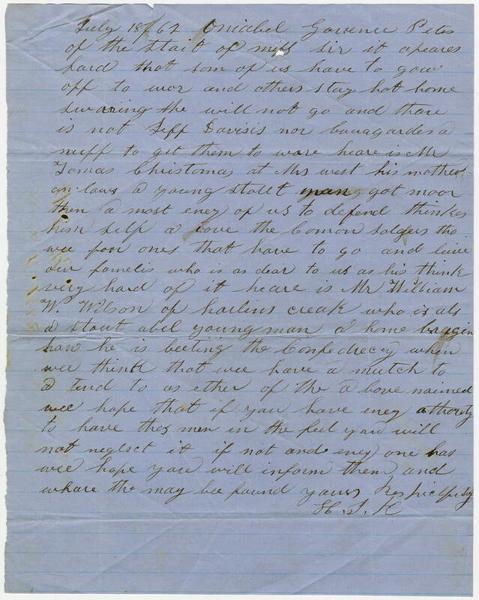 July 18/62 Oniabel Governer Petes
of the Stait of miss Sir it apeares
hard that som of us have to gow
off to wor and others stay hot home
swaring the will not go and thare
is not Jeff Davisis nor bauagardes a
nuff to get them to ware heare is Mr
Tomas Christmas at Mrs west his mother
on law a young stout man got moor
then a most eney of us to depend thinkes
him self a bove the Comon Solders tho
wee pon ones that have to go and leive
our famelis who is as dear to us as his think
very hard of it heare is Mr William
W. Wilson of harlins creak who is als
a stout abel young man a home baggin
how he is beeting the Confedrecey when
wee think that wee have a mutch to
a tend to as either of the a bove naimed
wee hope that if you have eney athority
to have thes men in the feel you will
not neglect it if not and eney one has
wee hope you will inform them and
whare the may bee found yours Respictfuly
H. S. K